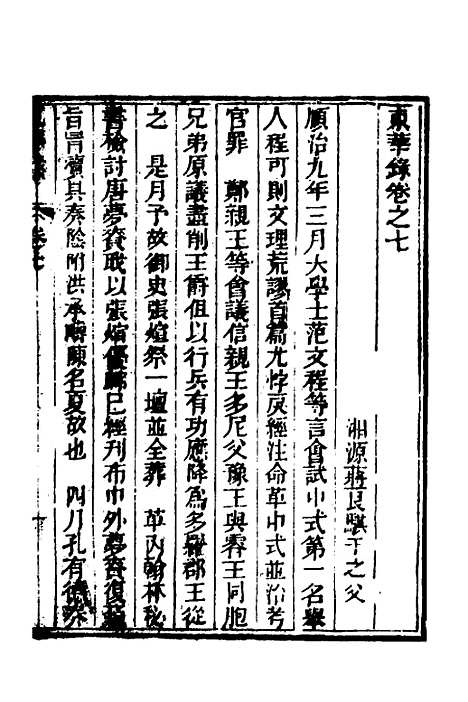 東華錄卷之七
湘源蔣良騏千之父
順治九年三月大學士范文程等言會試中式第一名舉
人程可則文理荒謬首篇尤悖戾經注命革中式並治考
官罪　鄭親王等會議信親王多尼父豫王與睿王同胞
兄弟原議盡削王爵但以行兵有功應降為多羅郡王從
之　是月予故御史張煊祭一壇並全葬　革內翰林秘
書檢討唐夢賚職以張煊優卹已經刊布中外夢賚復
旨冒瀆具奏陰附洪承疇陳名夏故也　四月孔有德